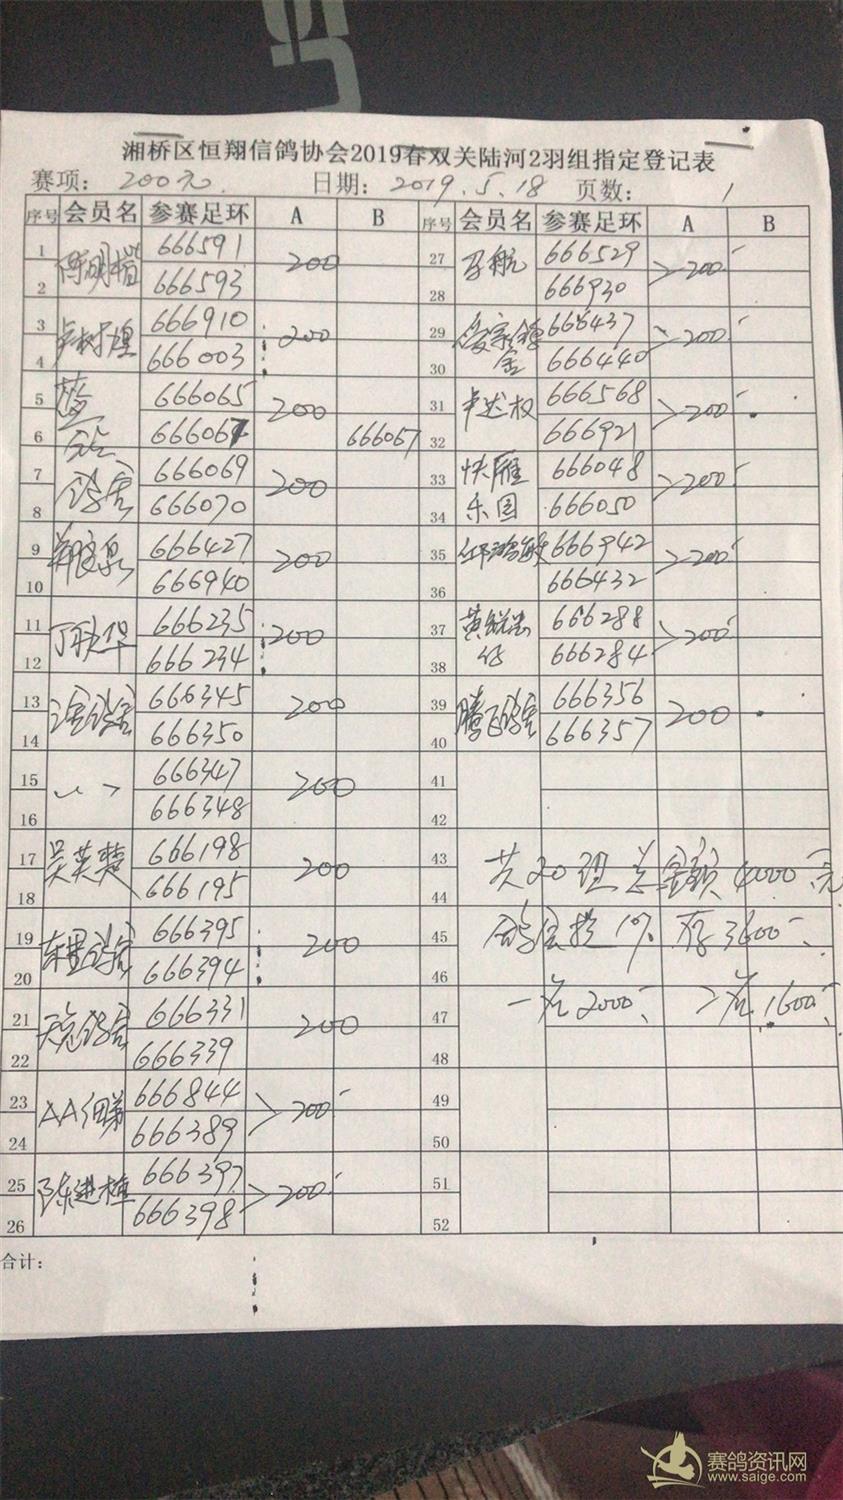 湘桥区恒翔信鸽协会2019春双关陆河2羽组指定登记表
赛项: 200元. 日期: 2019.5.18 页数: 1
序号 会员名 参赛足环 A B 序号 会员名 参赛足环 A B
1 陈明楷 666591 200 27 马航 666529 >200
2 666593 28 666930
3 卢树煌 666910 200 29 666437 >200
4 666003 30 666440
5 666065 200 31 卢述权 666568 >200
6 666067 666067 32 666921
7 鸽舍 666069 200 33 快雁 666048 >200
8 666070 34 乐园 666050
9 郑良泉 666427 200 35 666942 >200
10 666940 36 666432
11 丁耿华 666235 200 37 黄锐忠 666288 >200
12 666234 38 666284
13 鸽舍 666345 200 39 腾飞鸽舍 666356 200
14 666350 40 666357
15 666347 200 41
16 666348 42
17 吴英楚 666198 200 43 共20组 总金额4000元
18 666195 44
19 东里鸽舍 666395 200 45 存3600
20 666394 46
21 鸽舍 666331 200 47 一名2000 二名1600
22 666339 48
23 AA细弟 666844 >200 49
24 666389 50
25 陈进樟 666397 >200 51
26 666398 52
合计:
赛鸽资讯网
www.saige.com